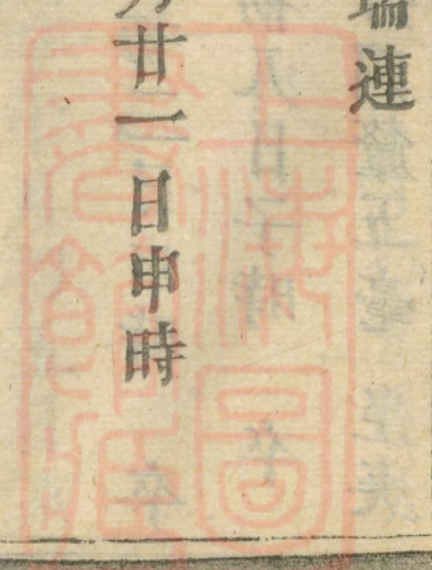 瑞連
月廿一日申時
上海圖
書館藏